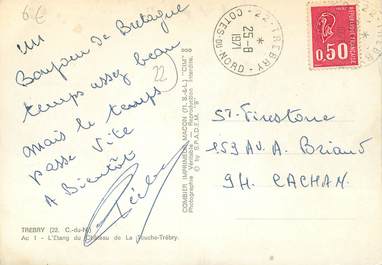 6 €
un
Bonjour de Bretagne
temps assez beau
mais le temps
passe vite
A Bientôt
22
TREBRY (22. C.-du-N.)
Ac 1 - L'Étang du Château de La Touche-Trébry.
COMBIER IMPRIMEUR MACON (71. S.-&-L.) "CIM"
Photographie Véritable - Reproduction Interdite.
© by S.P.A.D.E.M.
22-TREBRY
25-8
1971
COTES-DU-NORD
REPUBLIQUE FRANÇAISE
0,50
ST. Firestone
159 Av. A. Briand
94. CACHAN